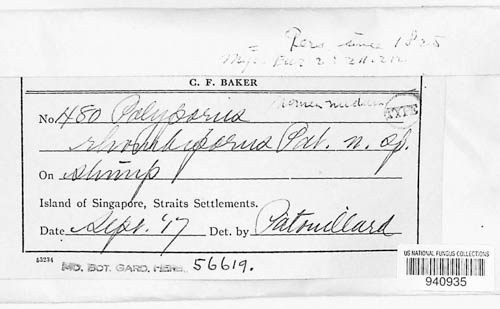 Pers. since 1825
Myc. Eur 2: 211. 212
C. F. BAKER
nomen nudum
No. 480 Polyporus
rhombiporus Pat. n. sp.
TYPE
On stump
Island of Singapore, Straits Settlements.
Date Sept. '17 Det. by Patouillard
53234
MO. BOT. GARD. HERB. 56619.
US NATIONAL FUNGUS COLLECTIONS
940935